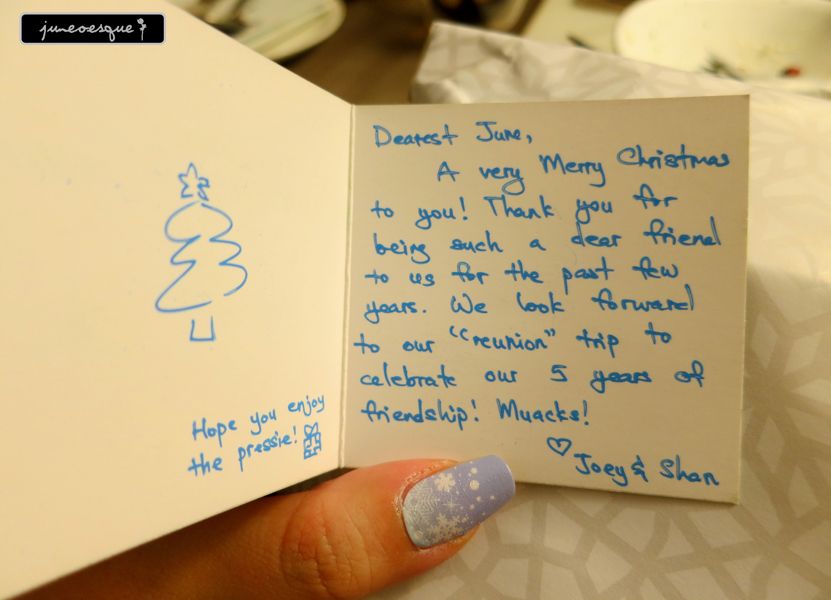 juneoesque
Hope you enjoy
the pressie!
Dearest June,
A very Merry Christmas
to you! Thank you for
being such a dear friend
to us for the past few
years. We look forward
to our "reunion" trip to
celebrate our 5 years of
friendship! Muacks!
♡ Joey & Shan